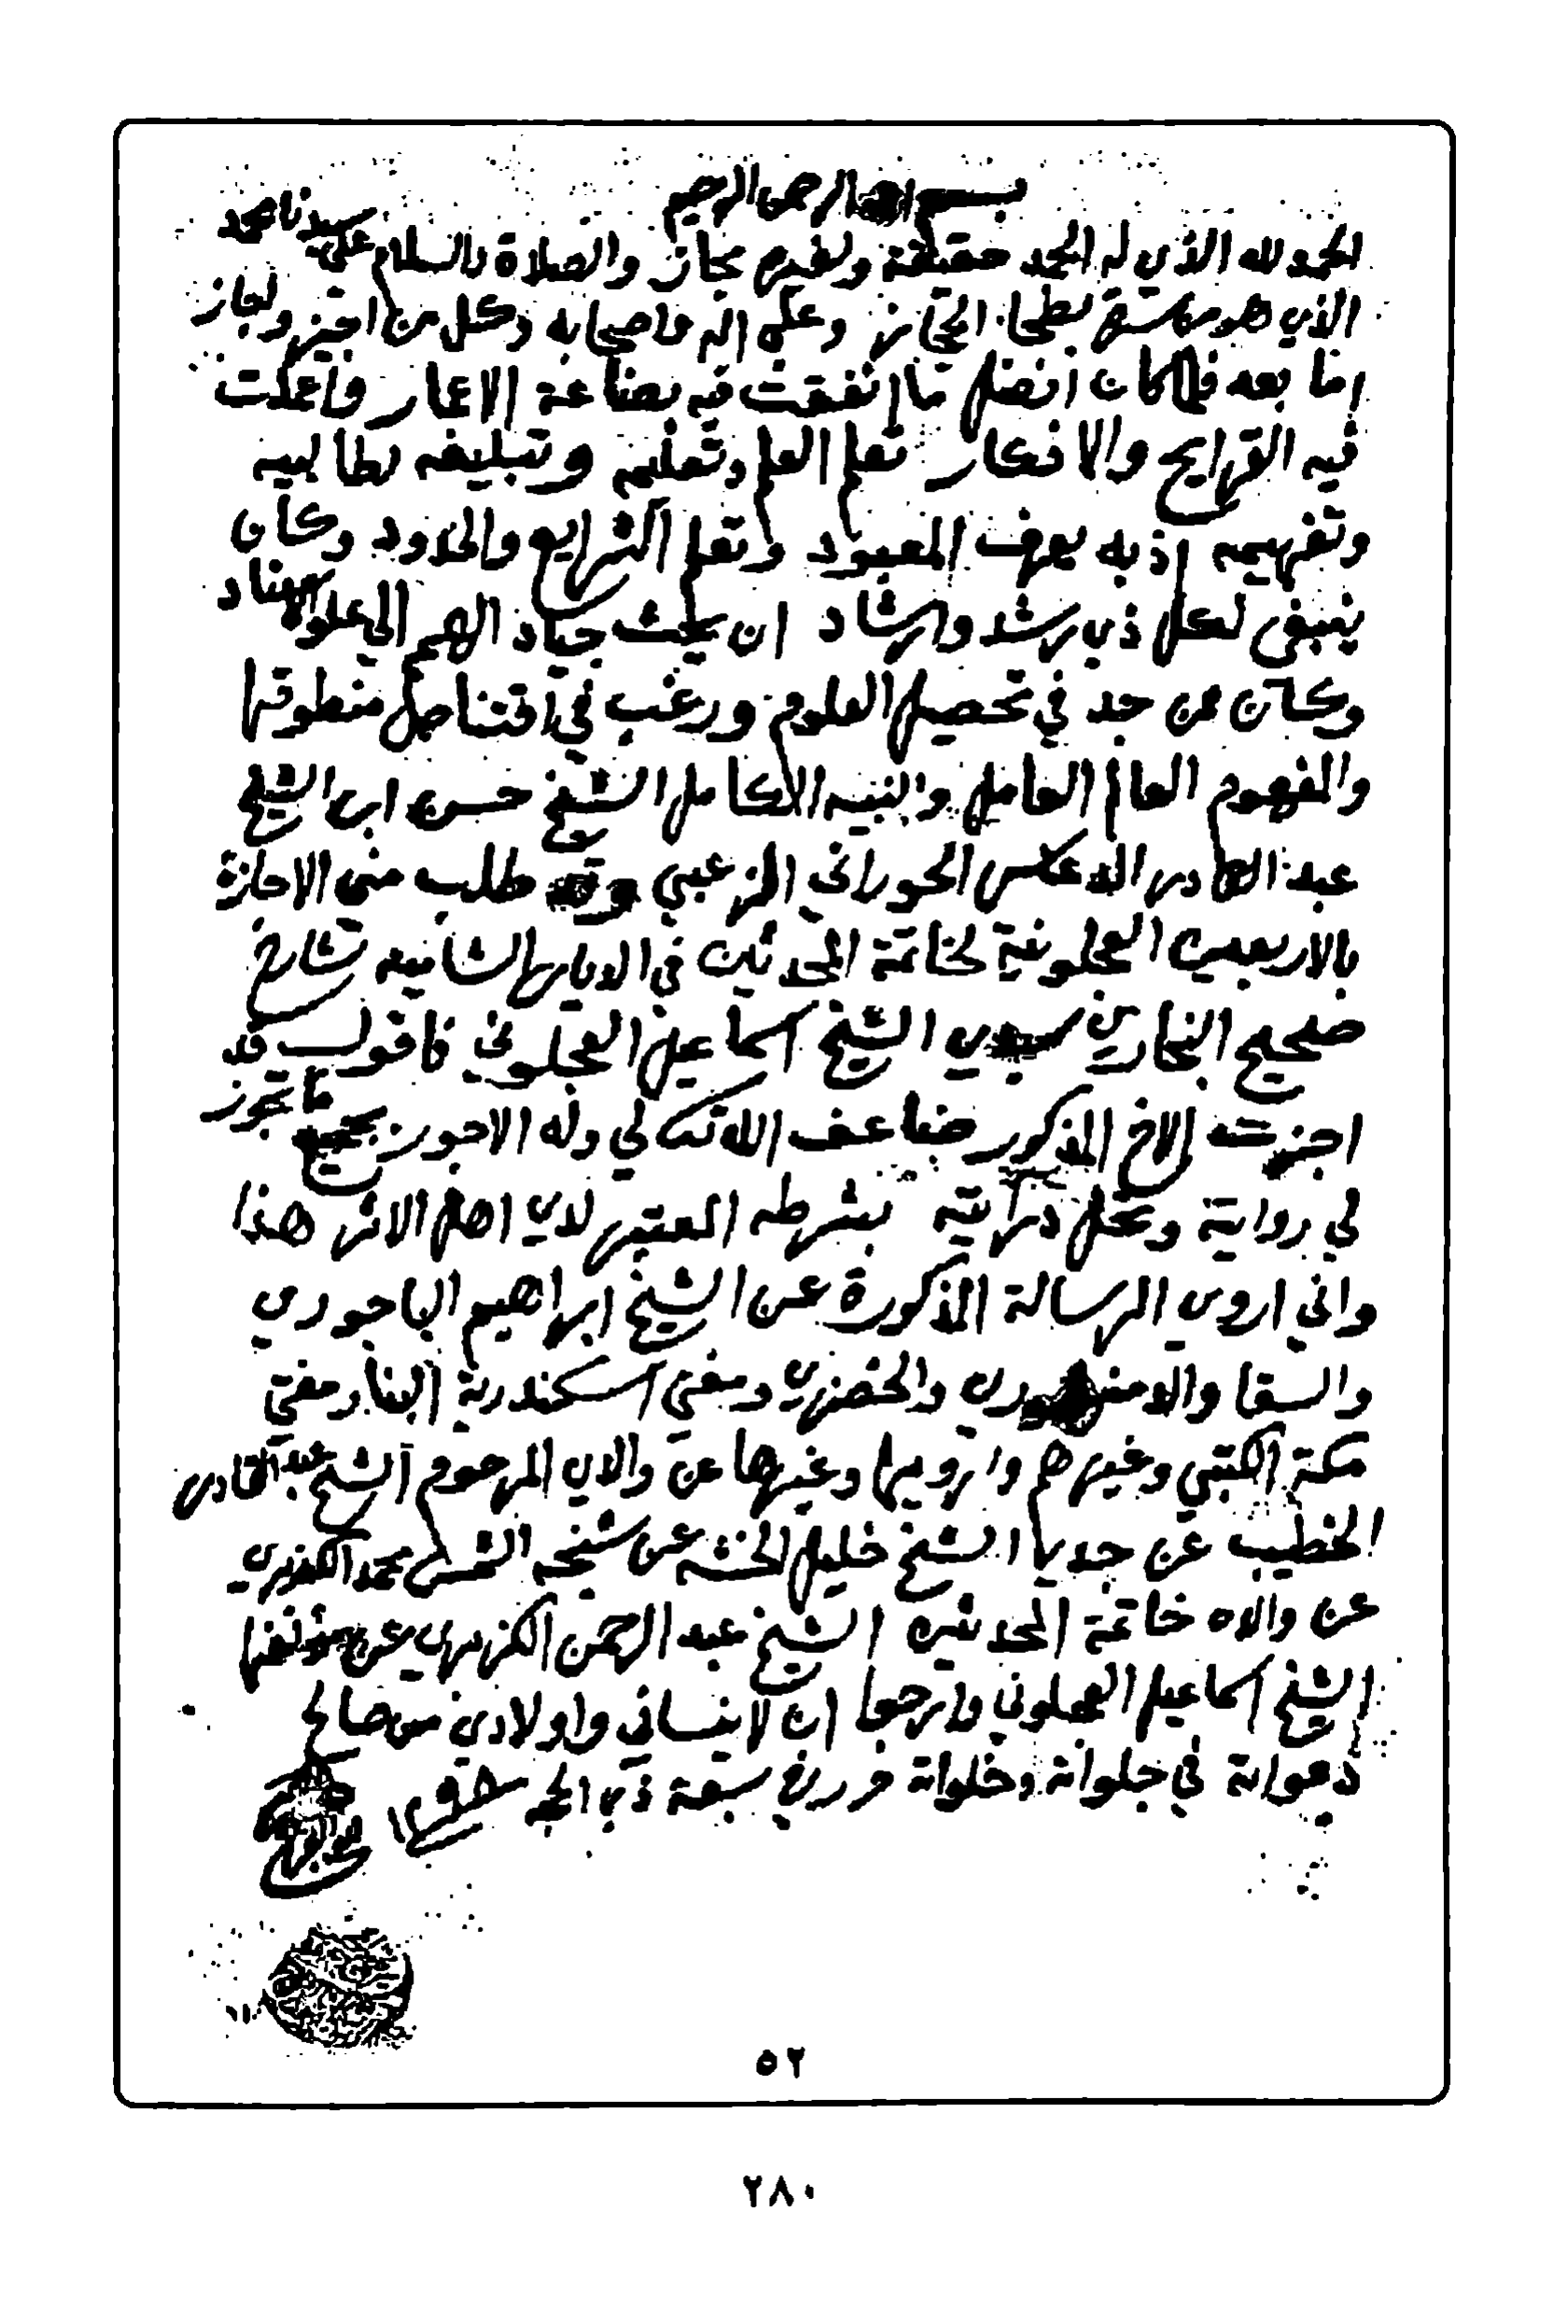 بسم الله الرحمن الرحيم
الحمد لله الذي له الحمد حقيقة ولغيره مجاز والصلاة والسلام على سيدنا محمد
الذي هو من بطحاء الحجاز وعلى اله واصحابه وكل من اجيز واجاز
اما بعد فلما كان افضل ما انفقت فيه بضاعة الاعمار واعملت
فيه القرايح والافكار تعلم العلم وتعليمه وتبليغه لطالبيه
وتفهيمه اذ به يعرف المعبود وتعلم الشرايع والحدود وكان
ينبغي لكل ذي رشد وارشاد ان يحث جياد الهمم الى علو الاسناد
وكان من جد في تحصيل العلوم ورغب في اقتناص منطوقها
والمفهوم العالم العامل والنبيه الكامل الشيخ حسن ابن الشيخ
عبد القادر الدعكس الحوراني الزعبي وقد طلب مني الاجازة
بالاربعين العجلونية لخاتمة المحدثين في الديار الشاميه شارح
صحيح البخاري سيدي الشيخ اسماعيل العجلوني فاقول قد
اجزت الاخ المذكور ضاعف الله تعالى لي وله الاجور بجميع ما تجوز
لي رواية وتحل دراية بشرطه المعتبر لدى اهل الاثر هذا
واني اروي الرسالة المذكورة عن الشيخ ابراهيم الباجوري
والسقا والدمنهوري والخضري ومفتي اسكندرية البنا ومفتي
مكة الكتبي وغيرهم وارويها وغيرها عن والدي المرحوم الشيخ عبد القادر
الخطيب عن جدي الشيخ خليل الخشه عن شيخه الشمس محمد الكزبري
عن والده خاتمة المحدثين الشيخ عبد الرحمن الكزبري عن مؤلفها
الشيخ اسماعيل العجلوني وارجو ان لا ينساني واولادي من صالح
دعواته في جلواته وخلواته في سبعة ذي الحجه
٥٢
٢٨٠